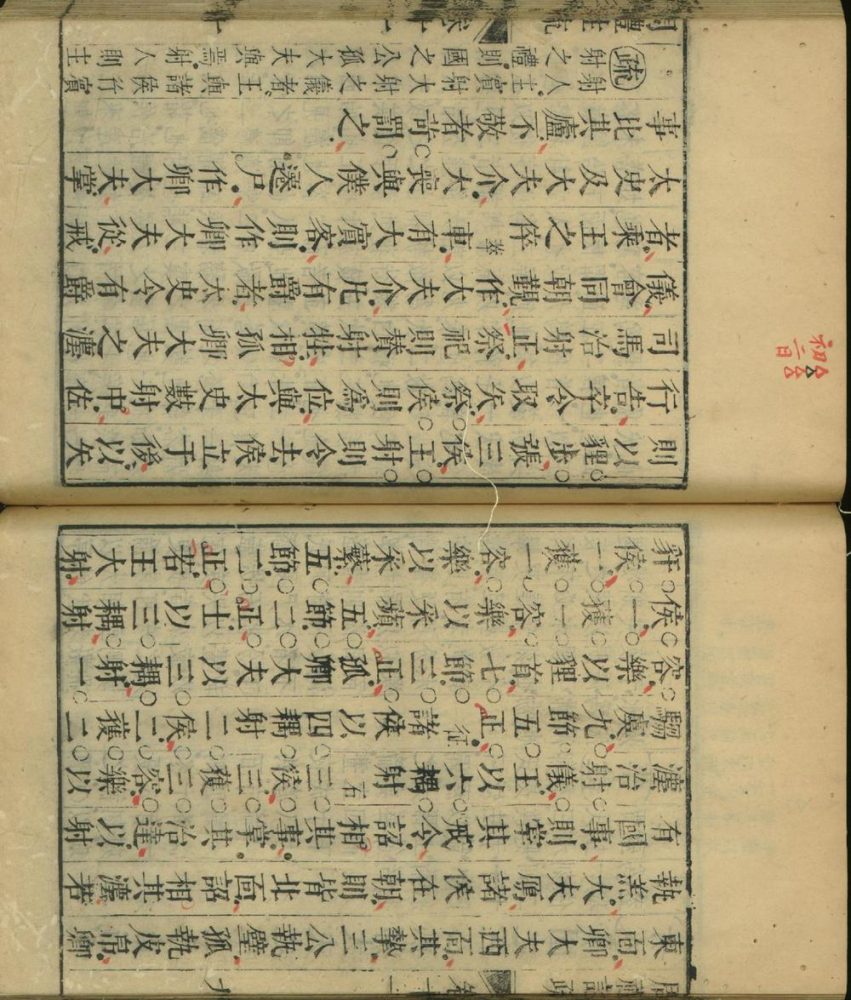 東面卿大夫西面其摯三公執璧孤執皮帛卿
執羔大夫鴈諸侯在朝則皆北面詔相其灋若
有國事則掌其戒令詔相其事掌其治達以射
灋治射儀王以六耦射石三侯三獲三容樂以
騶虞九節五正征諸侯以四耦射二侯二獲二
容樂以貍首七節三正孤卿大夫以三耦射一
侯一獲一容樂以采蘋五節二正士以三耦射
豻侯一獲一容樂以采蘩五節二正若王大射
則以貍步張三侯王射則令去侯立于後以矢
行告卒令取矢祭侯則為位與太史數射中佐
司馬治射正祭祀則贊射牲相孤卿大夫之灋
儀會同朝覲作大夫介凡有爵者太史令有爵
者乘王之倅萃車有大賓客則作卿大夫從戒
太史及大夫介大喪與僕人遷尸作卿大夫掌
事比其廬不敬者苛罰之
疏射人主賓射大射之儀者王與諸侯行賓
射之禮則國之公孤大夫與焉射人則主
初二日